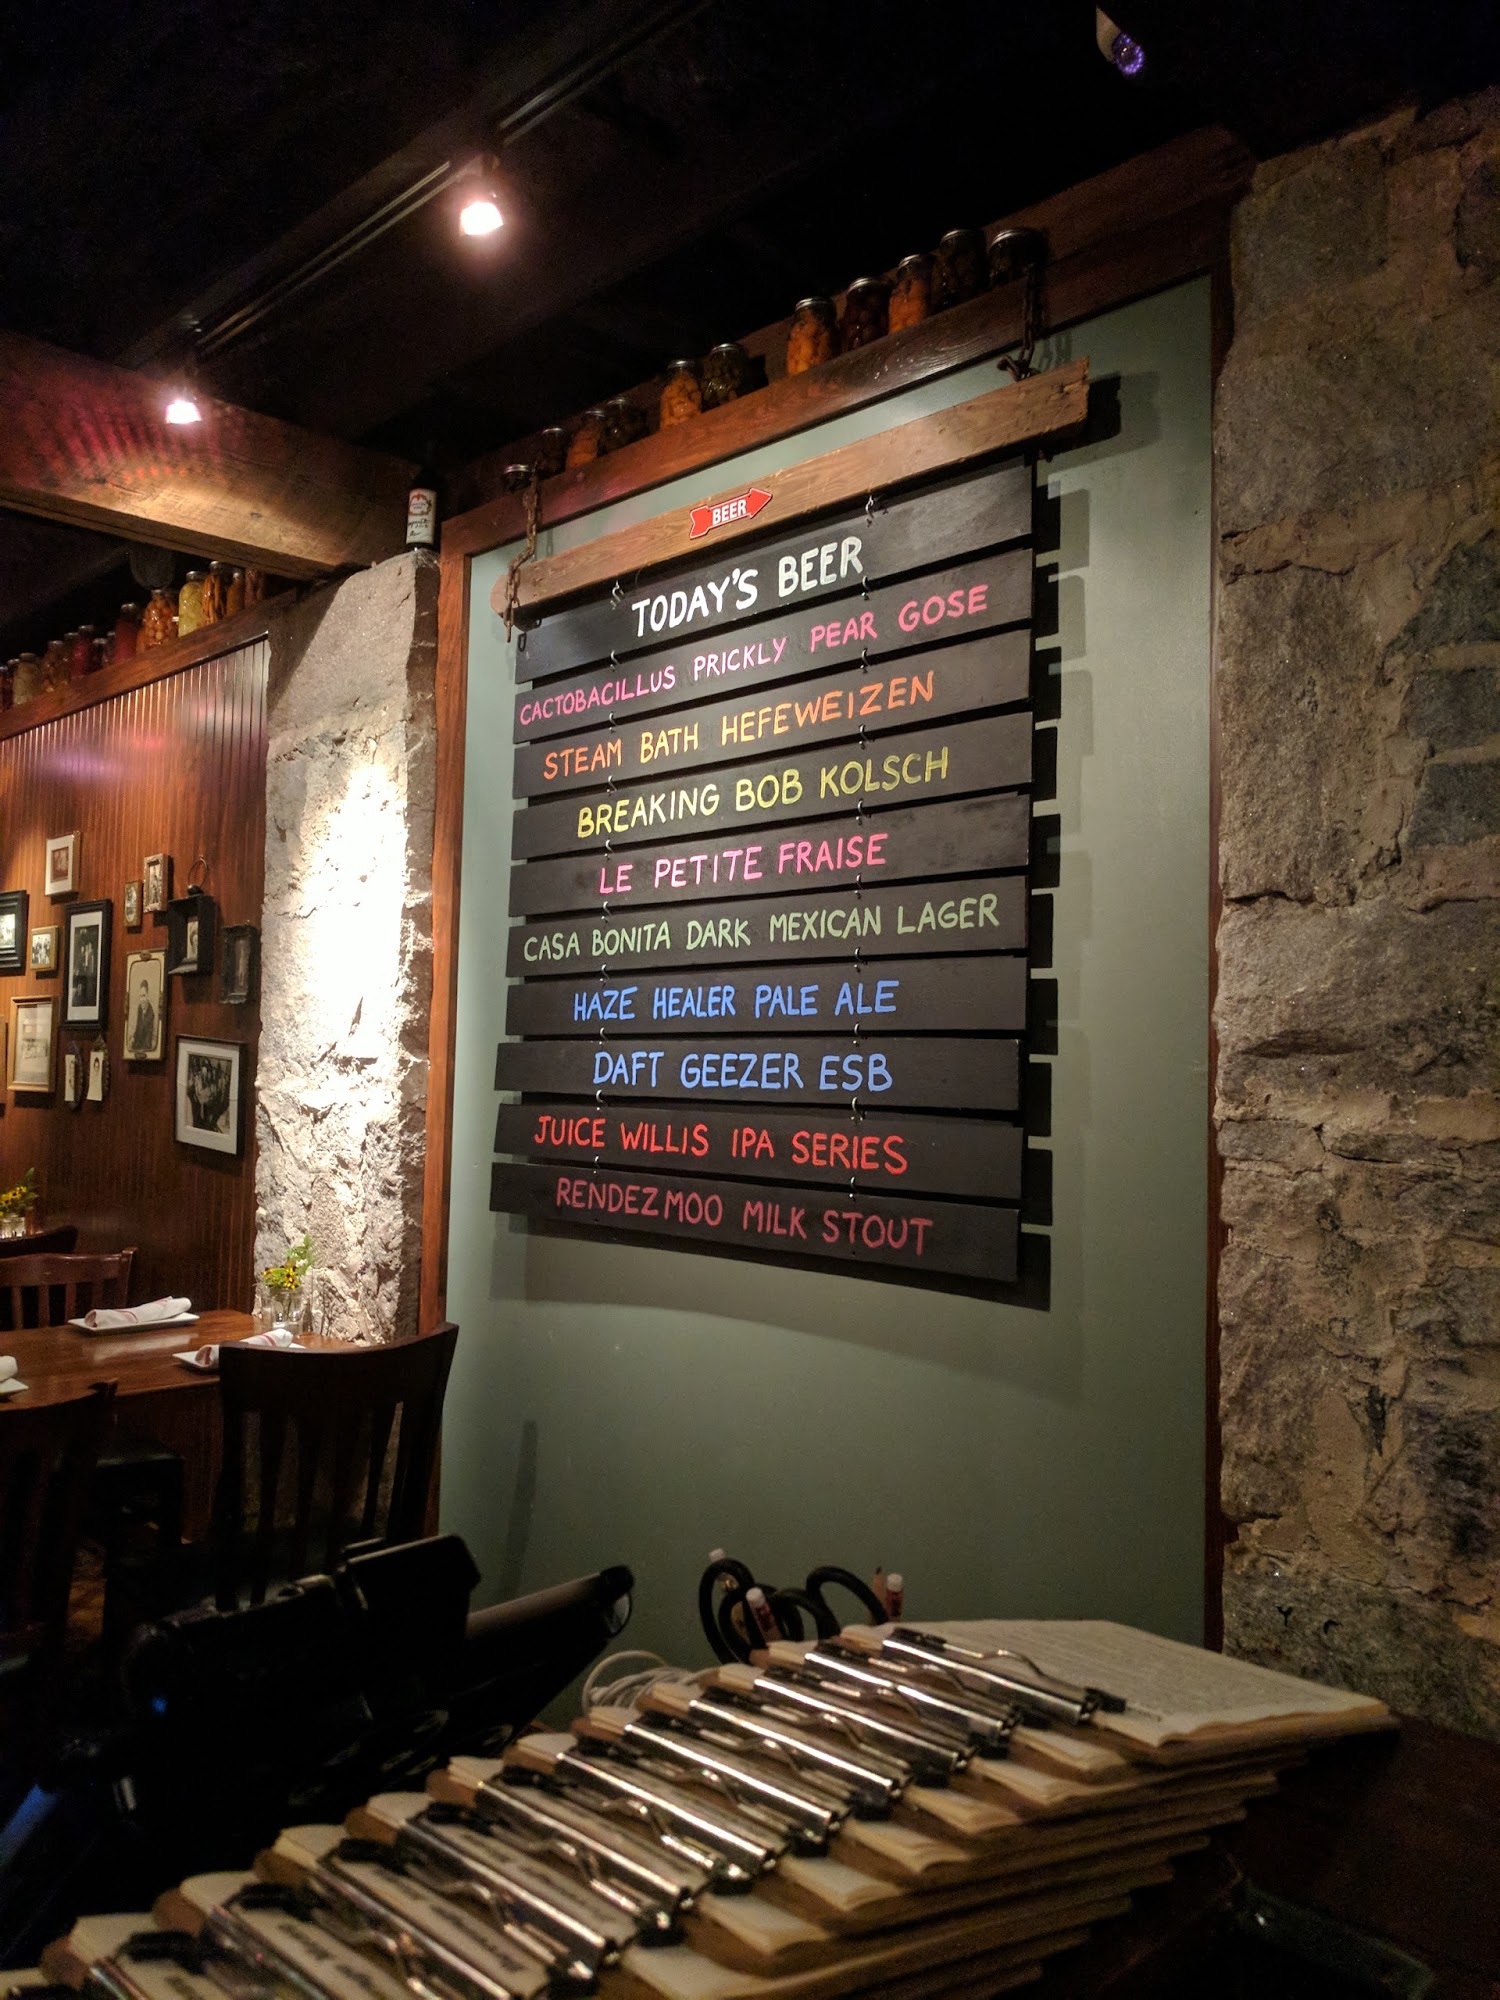 BEER
TODAY'S BEER
CACTOBACILLUS PRICKLY PEAR GOSE
STEAM BATH HEFEWEIZEN
BREAKING BOB KOLSCH
LE PETITE FRAISE
CASA BONITA DARK MEXICAN LAGER
HAZE HEALER PALE ALE
DAFT GEEZER ESB
JUICE WILLIS IPA SERIES
RENDEZMOO MILK STOUT